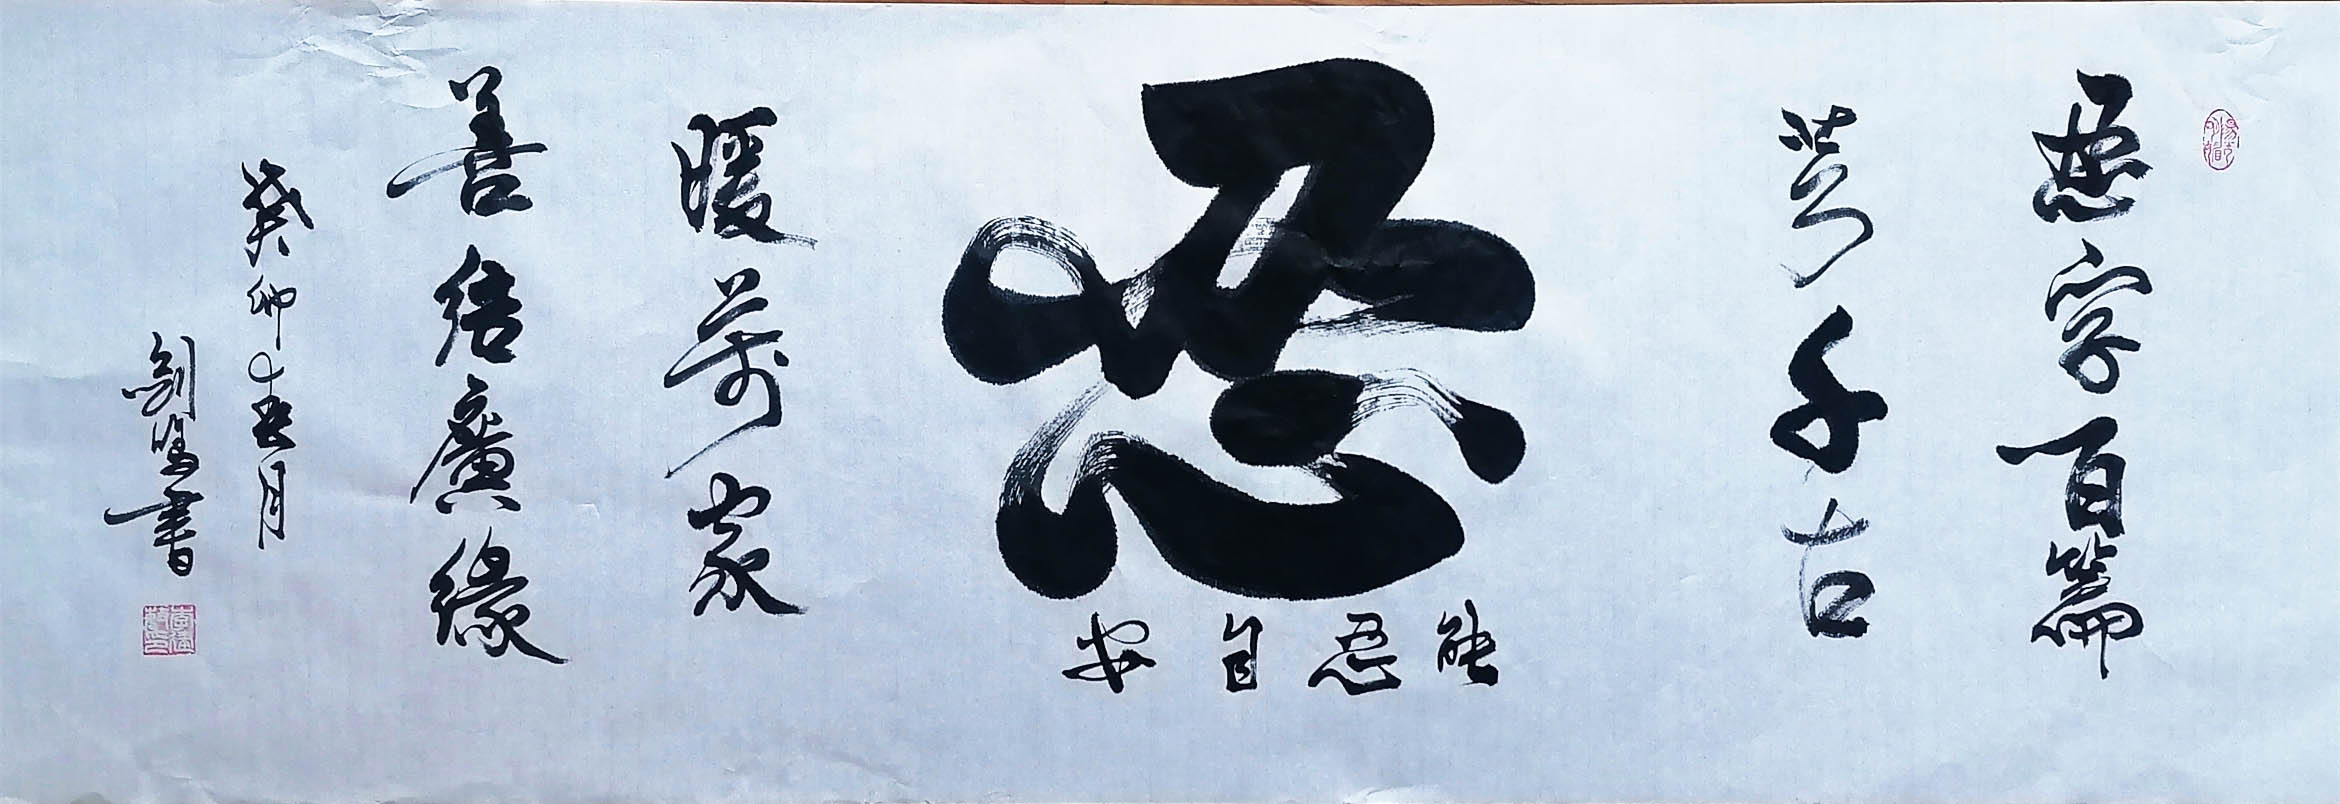 字百篇
芳千古
忍
能忍自安
暖萬家
善结廣緣
癸卯年五月
劍鳴書